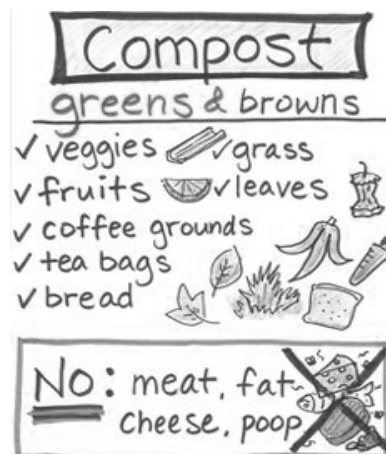 Compost
greens & browns
✓ veggies ✓ grass
✓ fruits ✓ leaves
✓ coffee grounds
✓ tea bags
✓ bread
NO: meat, fat
cheese, poop